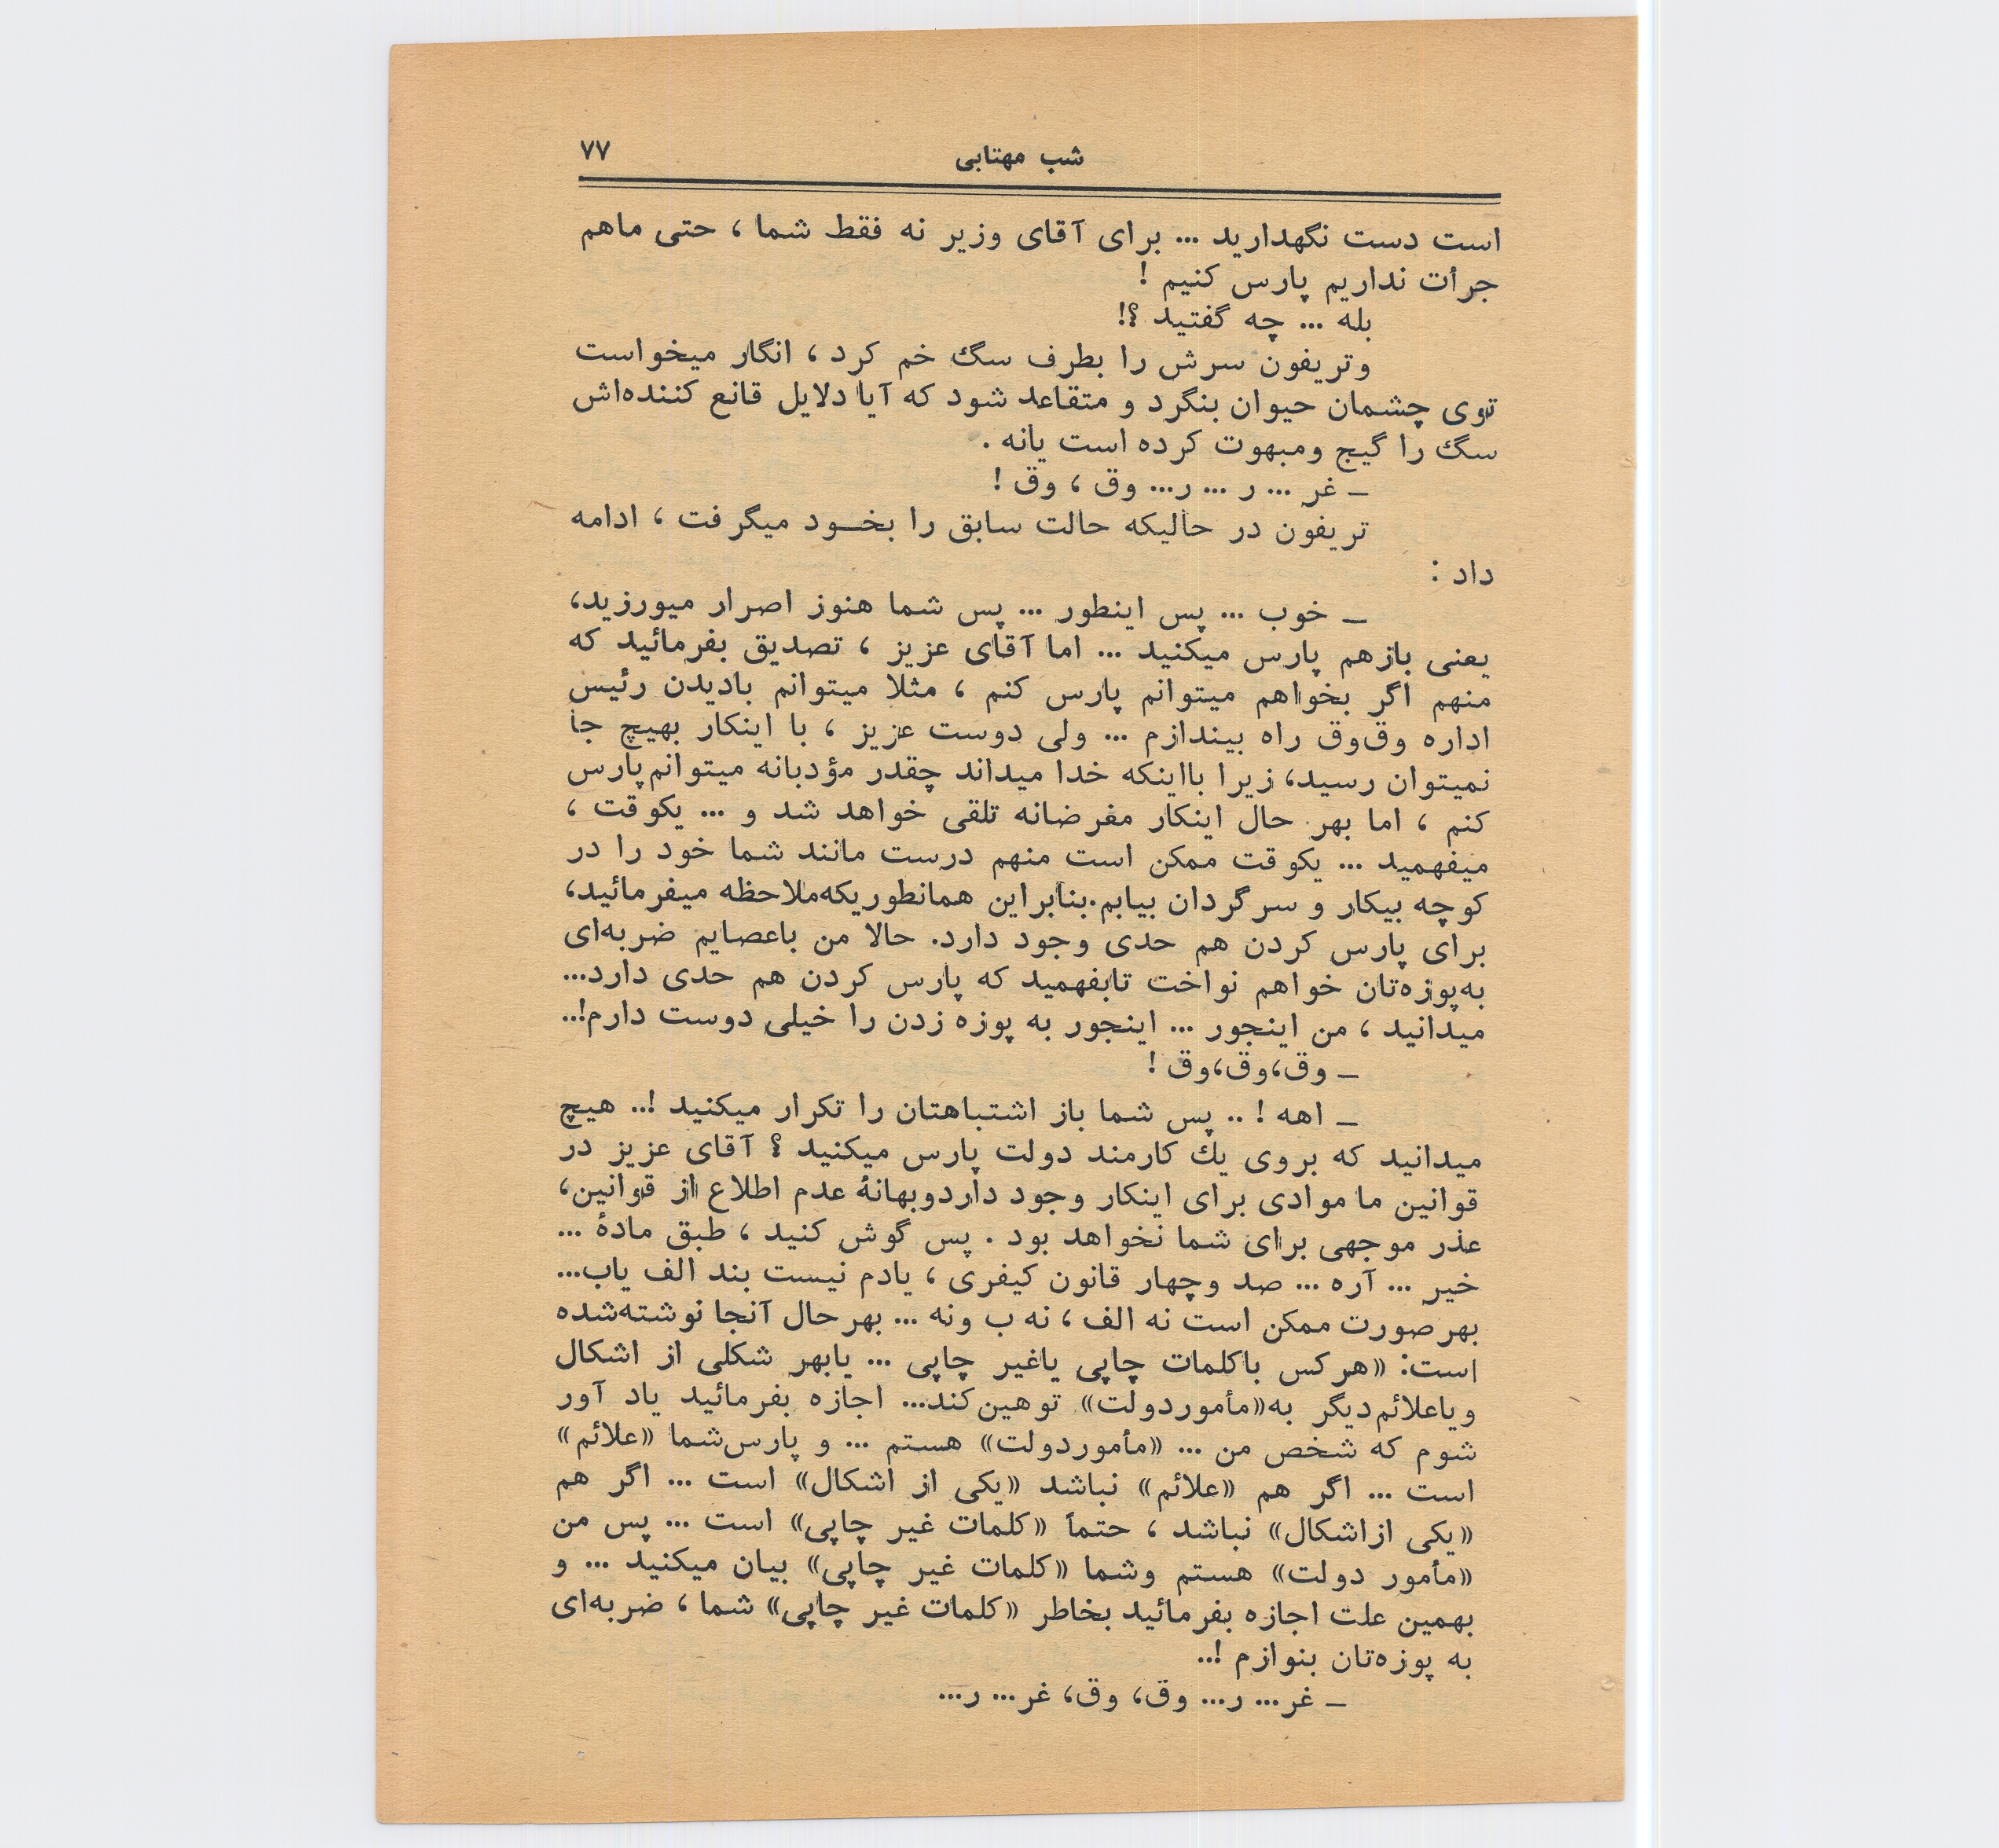 شب مهتابی ۷۷
است دست نگهدارید ... برای آقای وزیر نه فقط شما ، حتی ماهم
جرأت نداریم پارس کنیم !
بله ... چه گفتید ؟!
وتریفون سرش را بطرف سگ خم کرد ، انگار میخواست
توی چشمان حیوان بنگرد و متقاعد شود که آیا دلایل قانع کننده‌اش
سگ را گیج ومبهوت کرده است یانه .
ـ غر ... ر ... ر... وق ، وق !
تریفون در حالیکه حالت سابق را بخـود میگرفت ، ادامه
داد :
ـ خوب ... پس اینطور ... پس شما هنوز اصرار میورزید،
یعنی بازهم پارس میکنید ... اما آقای عزیز ، تصدیق بفرمائید که
منهم اگر بخواهم میتوانم پارس کنم ، مثلا میتوانم بادیدن رئیس
اداره وق‌وق راه بیندازم ... ولی دوست عزیز ، با اینکار بهیچ جا
نمیتوان رسید، زیرا بااینکه خدا میداند چقدر مؤدبانه میتوانم پارس
کنم ، اما بهر حال اینکار مغرضانه تلقی خواهد شد و ... یکوقت ،
میفهمید ... یکوقت ممکن است منهم درست مانند شما خود را در
کوچه بیکار و سرگردان بیابم.بنابراین همانطوریکه‌ملاحظه میفرمائید،
برای پارس کردن هم حدی وجود دارد. حالا من باعصایم ضربه‌ای
به‌پوزه‌تان خواهم نواخت تابفهمید که پارس کردن هم حدی دارد...
میدانید ، من اینجور ... اینجور به پوزه زدن را خیلی دوست دارم!..
ـ وق،وق،وق !
ـ اهه ! .. پس شما باز اشتباهتان را تکرار میکنید !.. هیچ
میدانید که بروی یك کارمند دولت پارس میکنید ؟ آقای عزیز در
قوانین ما موادی برای اینکار وجود داردوبهانهٔ عدم اطلاع از قوانین،
عذر موجهی برای شما نخواهد بود . پس گوش کنید ، طبق مادهٔ ...
خیر ... آره ... صد وچهار قانون کیفری ، یادم نیست بند الف یاب...
بهرصورت ممکن است نه الف ، نه ب ونه ... بهرحال آنجا نوشته‌شده
است: «هرکس باکلمات چاپی یاغیر چاپی ... یابهر شکلی از اشکال
ویاعلائم‌دیگر به«مأموردولت» توهین‌کند... اجازه بفرمائید یاد آور
شوم که شخص من ... «مأموردولت» هستم ... و پارس‌شما «علائم»
است ... اگر هم «علائم» نباشد «یکی از اشکال» است ... اگر هم
«یکی ازاشکال» نباشد ، حتماً «کلمات غیر چاپی» است ... پس من
«مأمور دولت» هستم وشما «کلمات غیر چاپی» بیان میکنید ... و
بهمین علت اجازه بفرمائید بخاطر «کلمات غیر چاپی» شما ، ضربه‌ای
به پوزه‌تان بنوازم !..
ـ غر... ر... وق، وق، غر... ر...